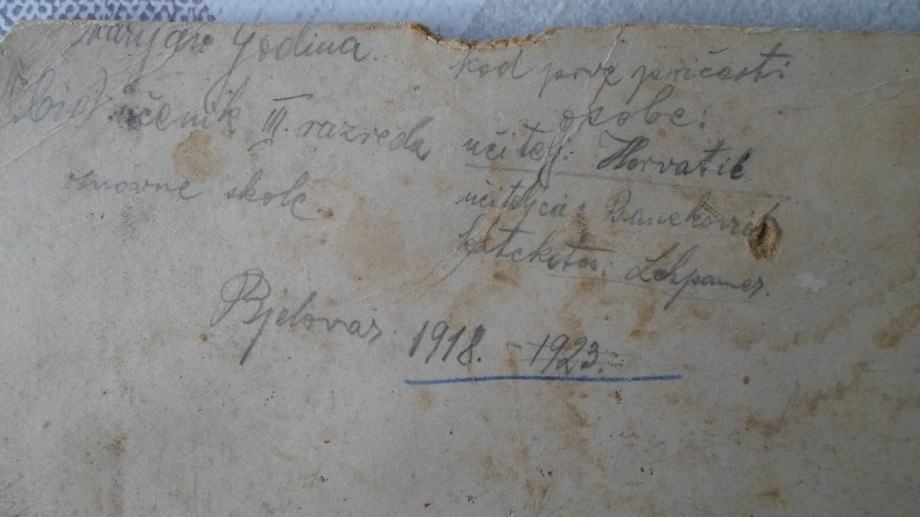 Marijan Godina.
(bio) učenik III. razreda
osnovne škole.
kod prve pričesti
osobe:
učitelj: Horvatić
učiteljica: Baneković
kateheta: Lehpamer.
Bjelovar. 1918. - 1923.